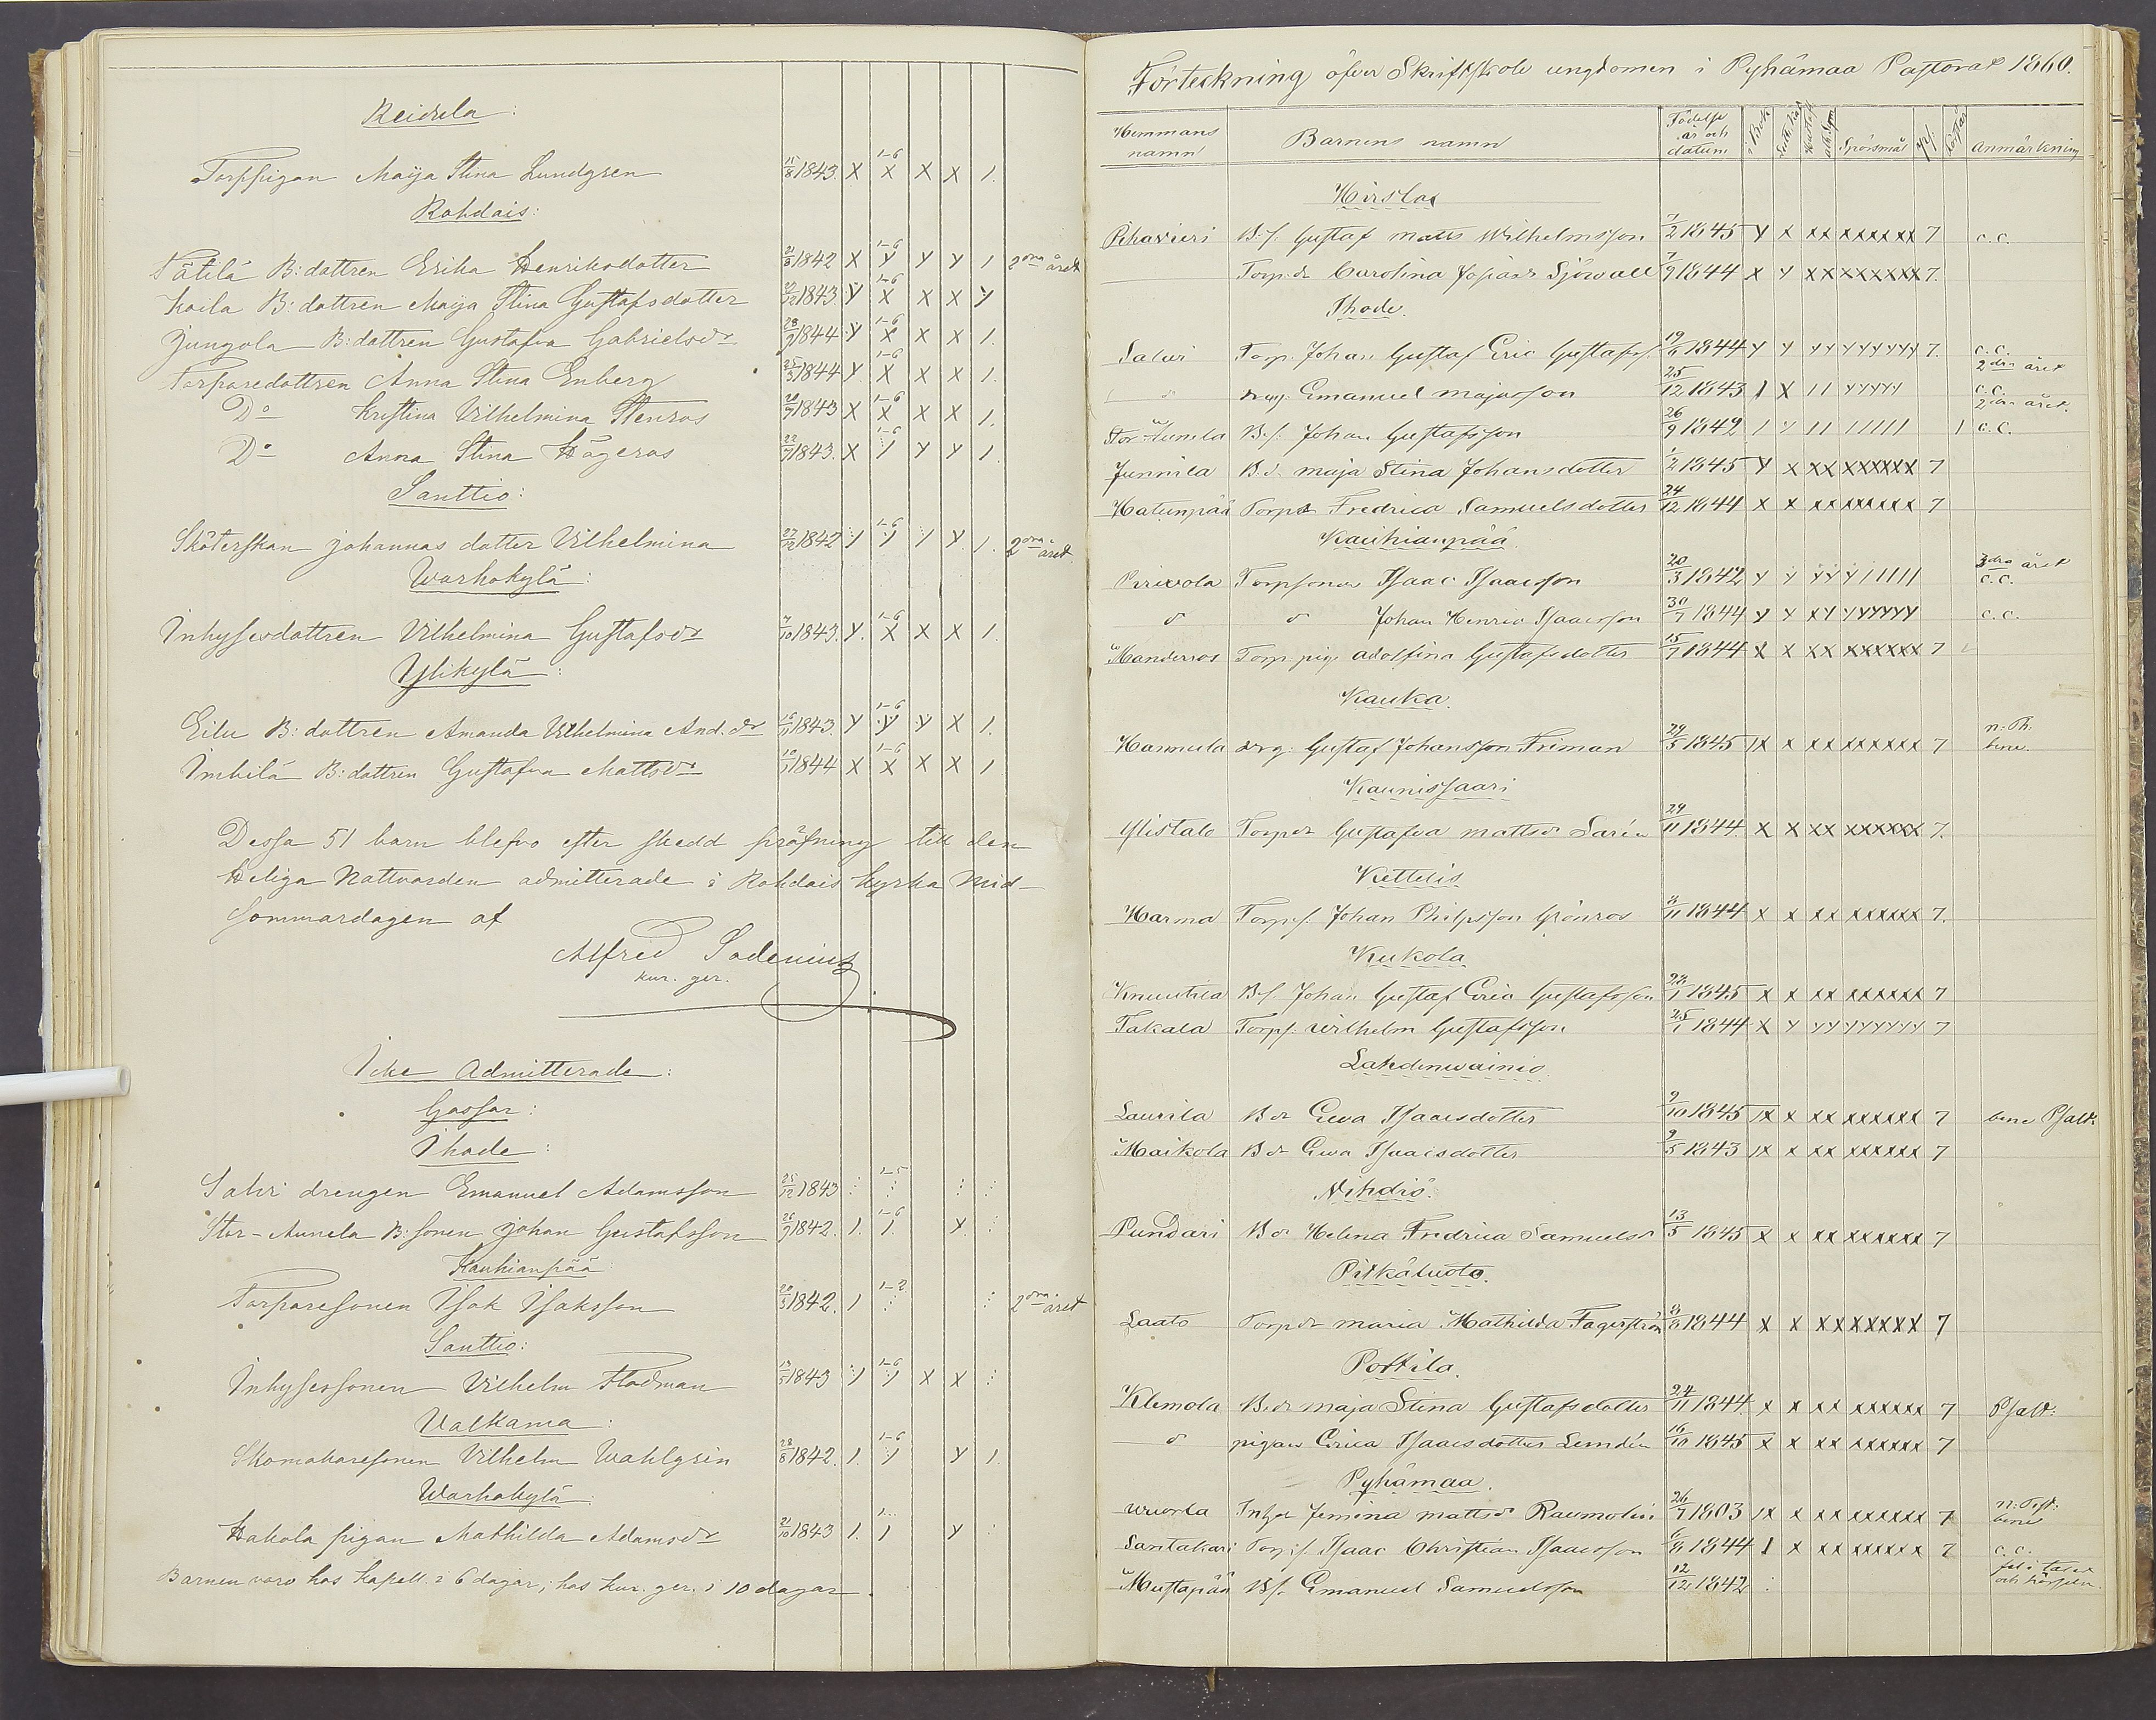 Reidila:
Torppigan Maija Stina Lundgren 11/8 1843. X 1-6 X X X 1.
Rohdais:
Pätilä B: dottren Erika Henriksdotter 21/8 1842 X 1-6 Y Y Y 1 2dra året
Kaila B: dottren Maija Stina Gustafsdotter 1843 Y 1-6 X X X Y
Jungola B: dottren Gustafva Gabrielsdr 28/9 1844 Y 1-6 X X X 1.
Torparedottren Anna Stina Enberg 25/3 1844 Y 1-6 X X X 1.
Do Kristina Vilhelmina Stenros 1843 X 1-6 X X X 1.
Do Anna Stina Högeros 22/7 1843. X 1-6 Y Y Y 1.
Santtio:
Sköterskan Johannas dotter Vilhelmina 27/12 1842 Y 1-6 Y Y Y 1. 2dra året
Warhokylä:
Inhysesdottren Vilhelmina Gustafsdr 7/10 1843. Y. 1-6 X X X 1.
Ylikylä:
Eilu B: dottren Amanda Vilhelmina And.dr 1843. Y 1-6 Y Y X 1.
Imbilä B: dottren Gustafva Mattsdr 1844 X 1-6 X X X 1
Dessa 51 barn blefvo efter skedd pröfning till den
Heliga Nattvarden admitterade i Rohdais kyrka Mid-
sommardagen af
Alfred Sadenius
kur. ger.
Icke Admitterade:
Gossar:
Ihode:
Salvi drengen Emanuel Adamsson 25/12 1843 1-5
Stor-Aunela B: sonen Johan Gustafsson 26/9 1842. 1. 1-6 1. Y
Kauhianpää
Torparesonen Isak Isaksson 20/3 1842. 1 1-2 2dra året
Santtio:
Inhysessonen Vilhelm Flodman 1843 Y 1-6 Y X X
Walkama:
Skomakaresonen Vilhelm Wahlgrén 28/8 1842. 1. 1-6 Y Y 1.
Warhokylä:
Hakola pigan Mathilda Adamsdr 21/10 1843 1. 1.. 1 Y
Barnen voro hos Kapell. i 6 dagar; hos kur. ger. i 10 dagar.
Förteckning öfver Skriftskole ungdomen i Pyhämaa Pastorat 1860.
Hemmans namn Barnens namn Födelse år och datum i Bok Spörsmål Anmärkning
Hirslax
Pihavieri B.s. Gustaf Matts Wilhelmsson 7/2 1845 Y X XX XXXXXX 7 c.c.
Torp.dr Carolina Josiasdr Sjöwall 7/9 1844 X Y XX XXXXXX 7.
Ihode.
Salwi Torp. Johan Gustaf Eric Gustafss. 19/6 1844 Y Y YY YYYYYY 7. c.c.
d drg. Emanuel Majasson 25/12 1843 1 X 11 YYYYY 2dra året c.c.
Stor Aunela B.s. Johan Gustafsson 26/9 1842 1 Y 11 11111 1 2dra året. c.c.
Junnila B.d. Maja Stina Johansdotter 1/2 1845 Y X XX XXXXXX 7
Hatunpää Torpdr Fredrica Samuelsdotter 24/12 1844 X X XX XXXXXX 7
Kauhianpää
Pirivola Torpsonen Isaac Isaacsson 20/3 1842 Y Y YY Y11111 3dra året c.c.
d d Johan Henric Isaacsson 30/7 1844 Y Y XY YYYYYY c.c.
Manderros Torp.pig. Adolfina Gustafsdotter 15/7 1844 X X XX XXXXXX 7
Kauka.
Hannula drg. Gustaf Johansson Friman 29/5 1845 1X X XX XXXXXX 7 bene.
Kaunissaari
Ylistalo Torpdr Gustafva Mattsdr Sarin 29/11 1844 X X XX XXXXXX 7.
Kettelis
Harma Torp.s. Johan Philpsson Grönros 8/11 1844 X X XX XXXXXX 7.
Kukola
Knuutila B.s. Johan Gustaf Eric Gustafsson 28/1 1845 X X XX XXXXXX 7
Takala Torps. Wilhelm Gustafsson 25/1 1844 X Y YY YYYYYY 7
Lahdenwainio
Laurila B dr Ewa Isaacsdotter 9/10 1845 1X X XX XXXXXX 7 bene Psalt.
Maikola B dr Ewa Isaacsdotter 9/5 1843 1X X XX XXXXXX 7
Nihdiö.
Pundari B dr Helena Fredrica Samuelsdr 13/5 1845 X X XX XXXXXX 7
Pitkäluoto.
Laato Torpdr Maria Mathilda Fagerström 8/8 1844 X X XX XXXXXX 7
Porttila.
Klemola B.dr Maja Stina Gustafsdotter 24/11 1844 X X XX XXXXXX 7 Psalt:
d pigan Erica Isaacsdotter Lemdén 16/10 1845 X X XX XXXXXX 7
Pyhämaa.
Wuorla Inh.dr Jemina Mattsdr Raumolin 26/7 1803 1X X XX XXXXXX 7 n: Test: bene
Santakari Torp.s. Isaac Christian Isaacsson 6/8 1844 1 X XX XXXXXX 7 c.c.
Mustapää B.s. Emanuel Samuelsson 12/12 1842 fel i talet och hörseln.